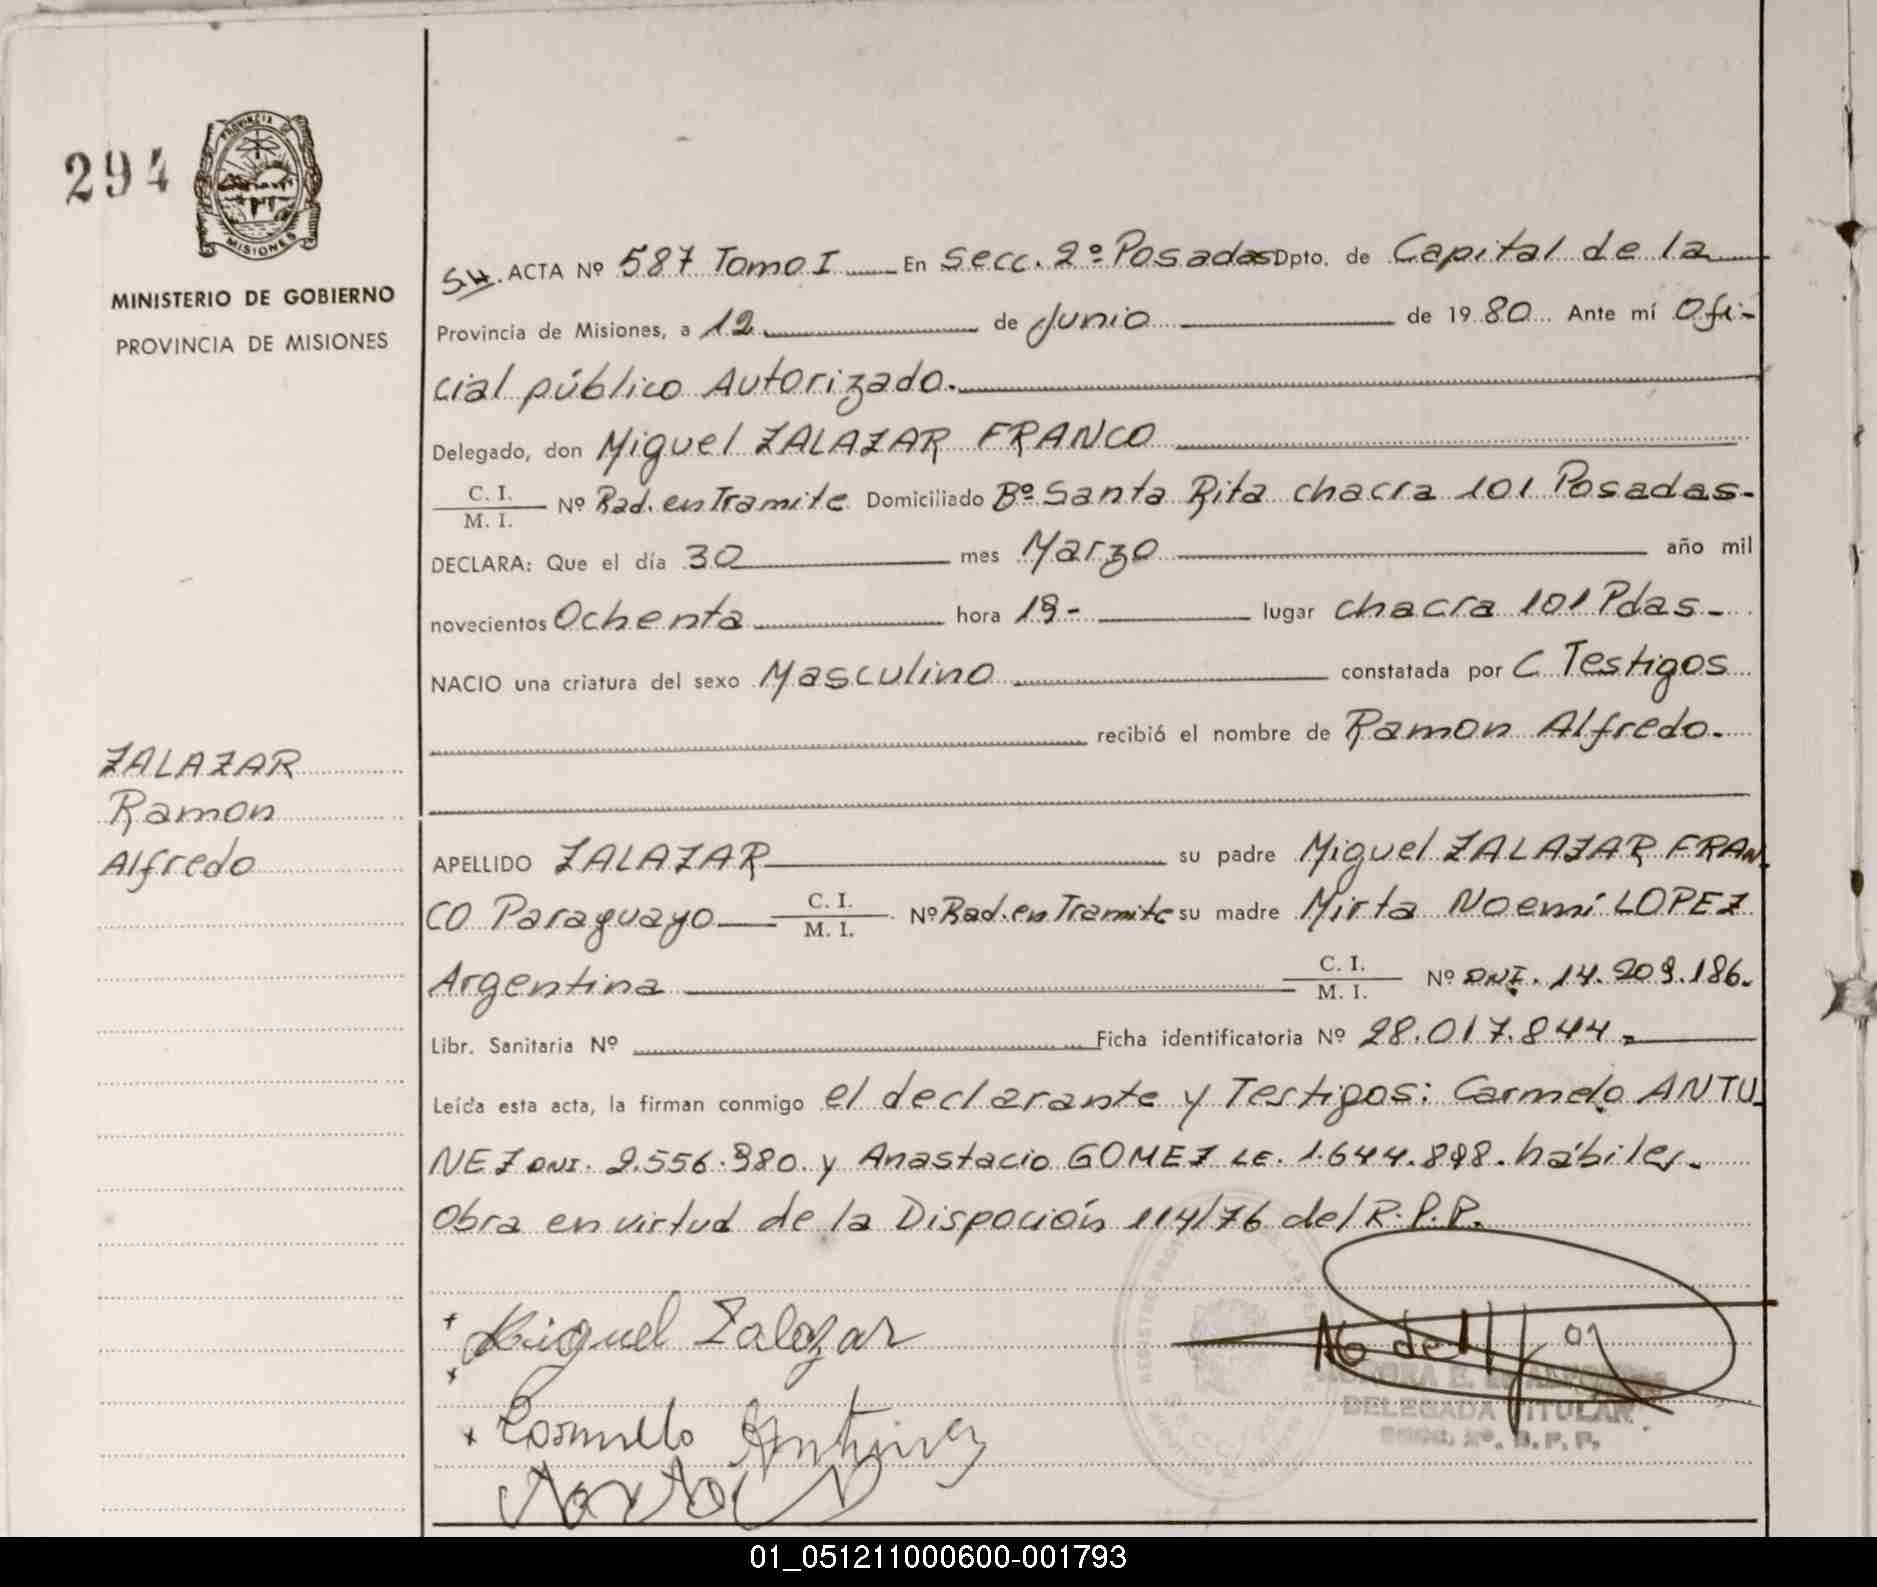 294
PROVINCIA DE
MISIONES
MINISTERIO DE GOBIERNO
PROVINCIA DE MISIONES
ZALAZAR
Ramon
Alfredo
ACTA Nº 587 Tomo I En Secc. 2º Posadas Dpto. de Capital de la
Provincia de Misiones, a 12 de Junio de 1980 Ante mí Ofi-
cial público Autorizado.
Delegado, don Miguel ZALAZAR FRANCO
C. I.
M. I. Nº Rad. en Tramite Domiciliado Bº Santa Rita chacra 101 Posadas-
DECLARA: Que el día 30 mes Marzo año mil
novecientos Ochenta hora 19- lugar chacra 101 Pdas-
NACIO una criatura del sexo Masculino constatada por C Testigos
recibió el nombre de Ramon Alfredo.
APELLIDO ZALAZAR su padre Miguel ZALAZAR FRAN-
CO Paraguayo C. I. M. I. Nº Rad. en Tramite su madre Mirta Noemí LOPEZ
Argentina C. I. M. I. Nº DNI. 14.209.186.
Libr. Sanitaria Nº Ficha identificatoria Nº 28.017.844.
Leída esta acta, la firman conmigo el declarante y Testigos: Carmelo ANTU-
NEZ DNI. 2.556.980. y Anastacio GOMEZ LE. 1.644.898. hábiles.
Obra en virtud de la Dispocioón 114/76 del R.P.P.
Miguel Zalazar
Carmelo Antunez
DELEGADA TITULAR
SECC. 2º. R. P. P.
01_051211000600-001793